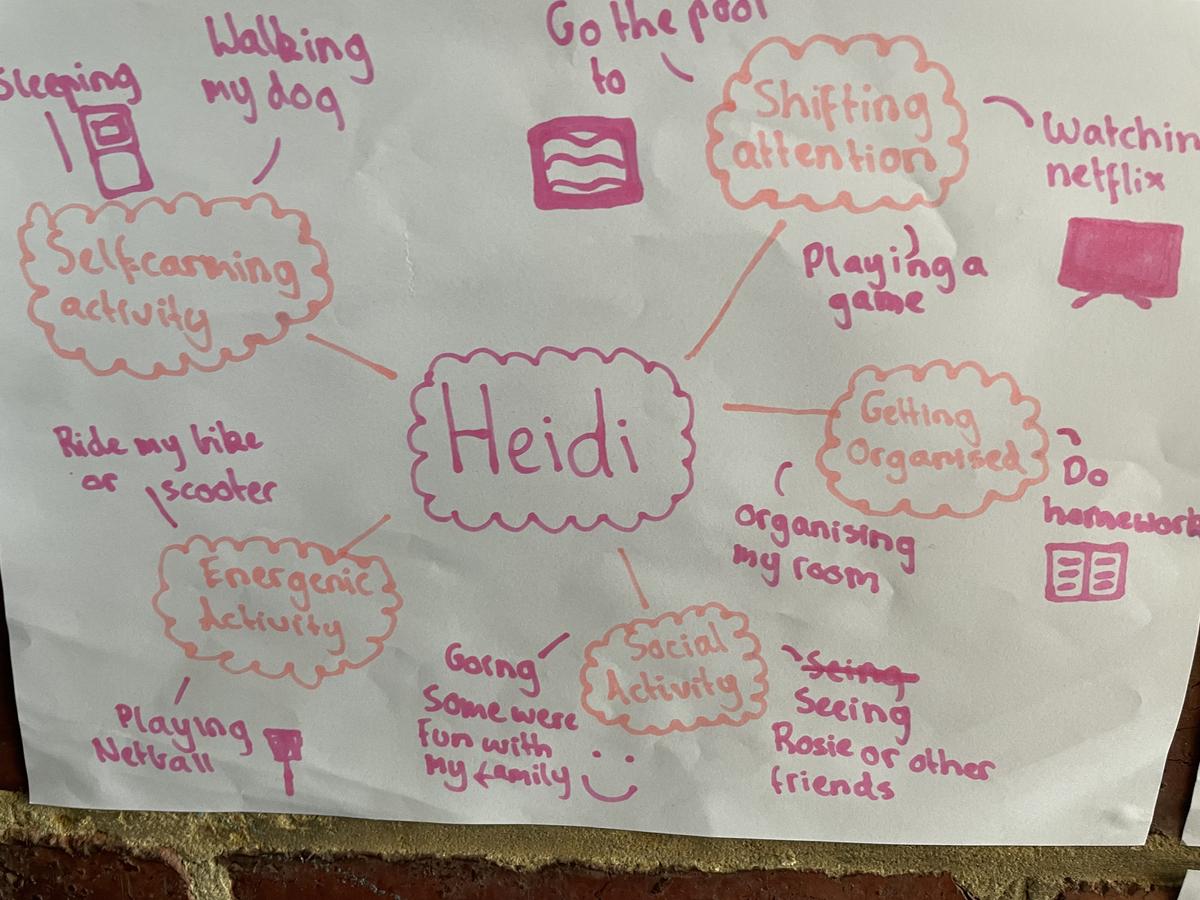 Sleeping
Walking
my dog
Self-carming
activity
Go the pool
to
Shifting
attention
Watchin
netflix
Playing a
game
Heidi
Getting
Organised
Do
homework
Organising
my room
Ride my bike
or scooter
Energenic
Activity
Playing
Netball
Social
Activity
Going
some were
fun with
my family
Seing
Seeing
Rosie or other
friends